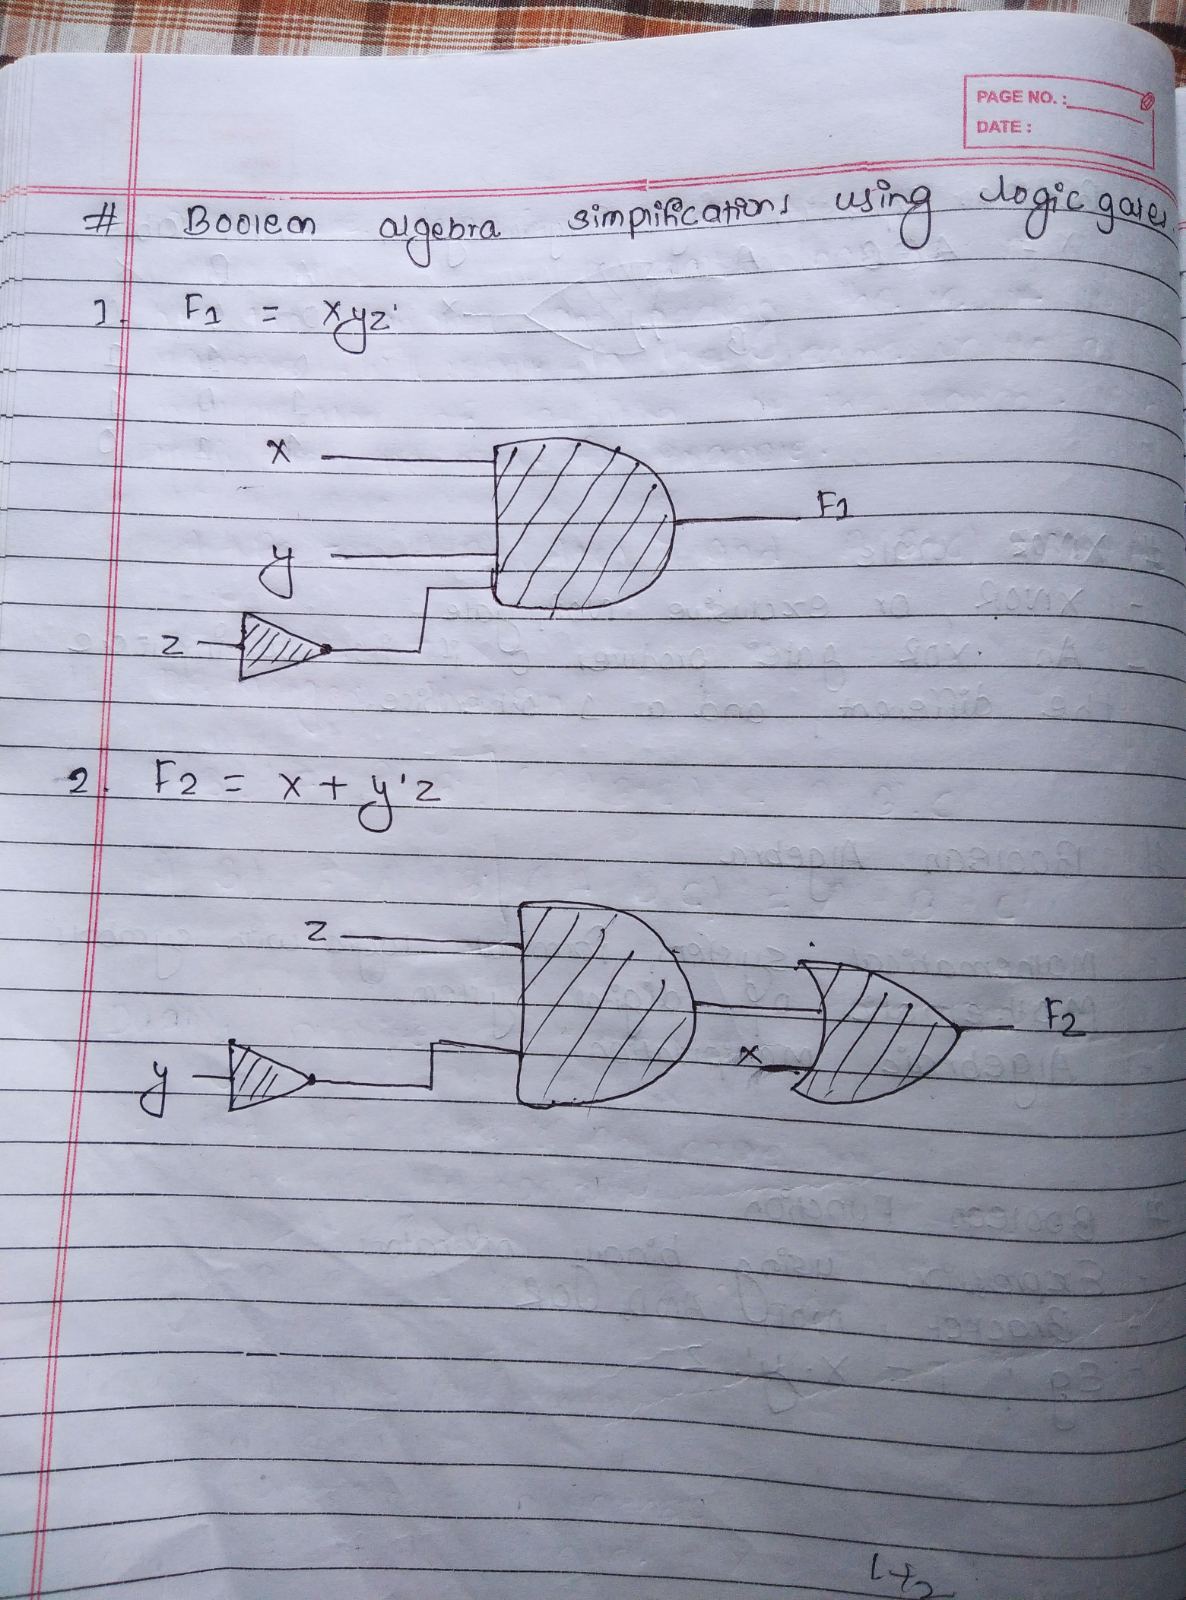 PAGE NO.:
DATE:
# Boolean algebra simplifications using logic gates
1. F1 = xyz'
x
F1
y
z
2. F2 = x + y'z
z
F2
x
y